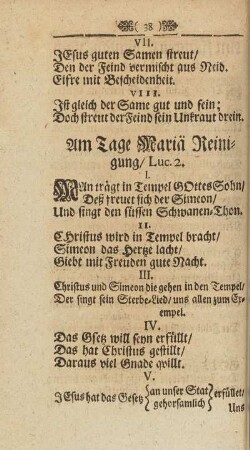 ( 38 )
VII.
JEsus guten Samen streut/
Den der Feind vermischt aus Neid.
Eifre mit Bescheidenheit.
VIII.
Ist gleich der Same gut und fein;
Doch streut der Feind sein Unkraut drein.
Am Tage Mariä Reini-
gung/ Luc. 2.
I.
MAn trägt in Tempel GOttes Sohn/
Deß freuet sich der Simeon/
Und singt den süssen Schwanen-Thon.
II.
CHristus wird in Tempel bracht/
Simeon das Hertze lacht/
Giebt mit Freuden gute Nacht.
III.
Christus und Simeon die gehen in den Tempel/
Der singt sein Sterbe-Lied/ uns allen zum Ex-
empel.
IV.
Das Gsetz will seyn erfüllt/
Das hat Christus gestillt/
Daraus viel Gnade qvillt.
V.
JEsus hat das Gesetz { an unser Stat / gehorsamlich } erfüllet/
Uns